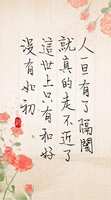 人一旦有了隔阂
就真的走不近了
这世上只有和好
没有如初